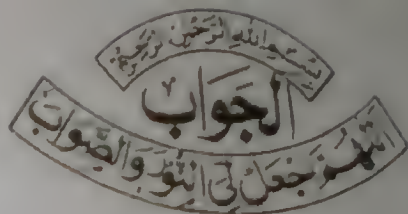 بسم الله الرحمن الرحيم
الجواب
اللهم جعل لی النور والصواب